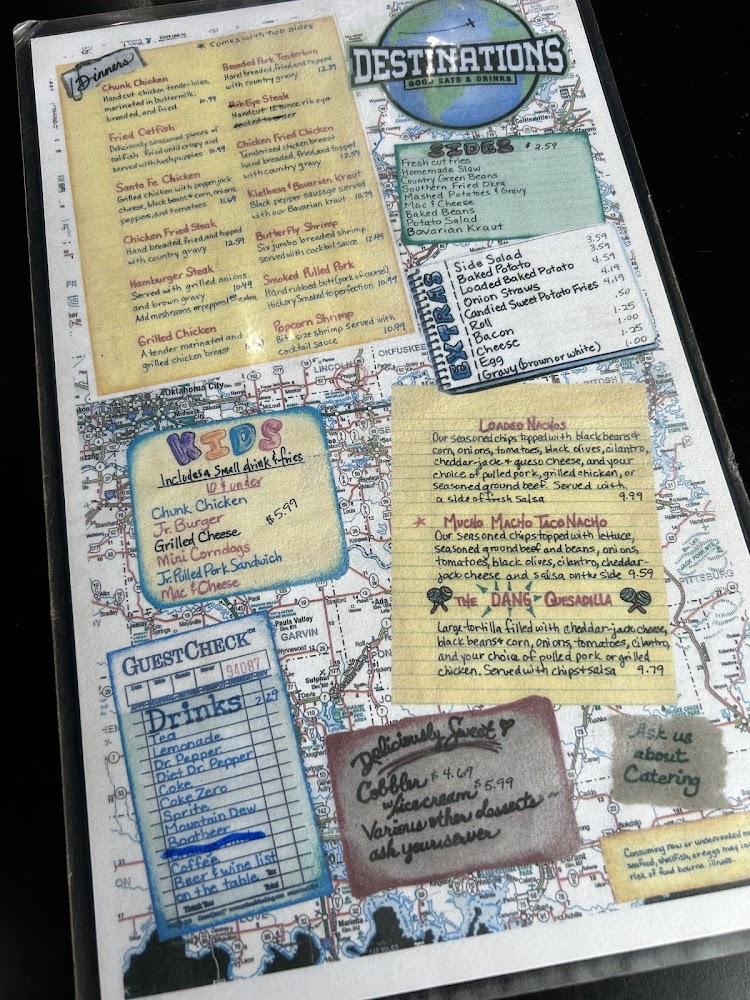 Dinners
* Comes with two sides
Chunk Chicken
Hand cut chicken tenderloins,
marinated in buttermilk,
breaded, and fried 10.99
Fried Catfish
Deliciously seasoned pieces of
catfish fried until crispy and
served with hushpuppies 10.99
Santa Fe Chicken
Grilled chicken with pepper jack
cheese, black beans & corn, onions,
peppers, and tomatoes 11.69
Chicken Fried Steak
Hand breaded, fried and topped
with country gravy 12.59
Hamburger Steak
Served with grilled onions
and brown gravy 10.49
Add mushrooms or peppers extra
Grilled Chicken
A tender marinated and
grilled chicken breast
Breaded Pork Tenderloin
Hand breaded, fried and topped
with country gravy 12.39
Rib Eye Steak
Handcut 12 ounce rib eye
smoked to order
Chicken Fried Chicken
Tenderised chicken breast
hand breaded, fried and topped
with country gravy 12.59
Kielbasa & Bavarian Kraut
Black pepper sausage served
with our Bavarian kraut 10.79
Butterfly Shrimp
Six jumbo breaded shrimp
served with cocktail sauce 12.49
Smoked Pulled Pork
Hand rubbed butt (pork of course)
Hickory Smoked to perfection 10.99
Popcorn Shrimp
Bite size shrimp served with
cocktail sauce 10.99
DESTINATIONS
GOOD EATS & DRINKS
SIDES $2.59
Fresh cut fries
Homemade Slaw
Country Green Beans
Southern Fried Okra
Mashed Potatoes & Gravy
Mac & Cheese
Baked Beans
Potato Salad
Bavarian Kraut
EXTRAS
Side Salad 3.59
Baked Potato 3.59
Loaded Baked Potato 4.59
Onion Straws 4.19
Candied Sweet Potato Fries 4.19
Roll .50
Bacon 1.25
Cheese 1.00
Egg 1.25
Gravy (brown or white) 1.00
OKFUSKEE
LINCOLN
Oklahoma City
KIDS
Includes a Small drink & fries
10 & under
Chunk Chicken
Jr. Burger
Grilled Cheese
Mini Corndogs
Jr. Pulled Pork Sandwich
Mac & Cheese
$5.99
LOADED NACHOS
Our seasoned chips topped with black beans &
corn, onions, tomatoes, black olives, cilantro,
cheddar-jack & queso cheese, and your
choice of pulled pork, grilled chicken, or
seasoned ground beef. Served with
a side of fresh salsa 9.99
* MUCHO MACHO TACO NACHO
Our seasoned chips topped with lettuce,
seasoned ground beef and beans, onions,
tomatoes, black olives, cilantro, cheddar-
jack cheese and salsa on the side 9.59
THE DANG QUESADILLA
Large tortilla filled with cheddar-jack cheese,
black beans & corn, onions, tomatoes, cilantro,
and your choice of pulled pork or grilled
chicken. Served with chips & salsa 9.79
Pauls Valley
GARVIN
GUESTCHECK™
94087
Drinks 2.29
Tea
Lemonade
Dr. Pepper
Diet Dr. Pepper
Coke
Coke Zero
Sprite
Mountain Dew
Rootbeer
Coffee
Beer & wine list
on the table
Tax
Total
Thank You
Deliciously Sweet
Cobbler $4.69
w/ice cream $5.99
Various other desserts ~
ask your server
Ask us
about
Catering
Consuming raw or undercooked
seafood, shellfish, or eggs may
risk of food bourne illness.